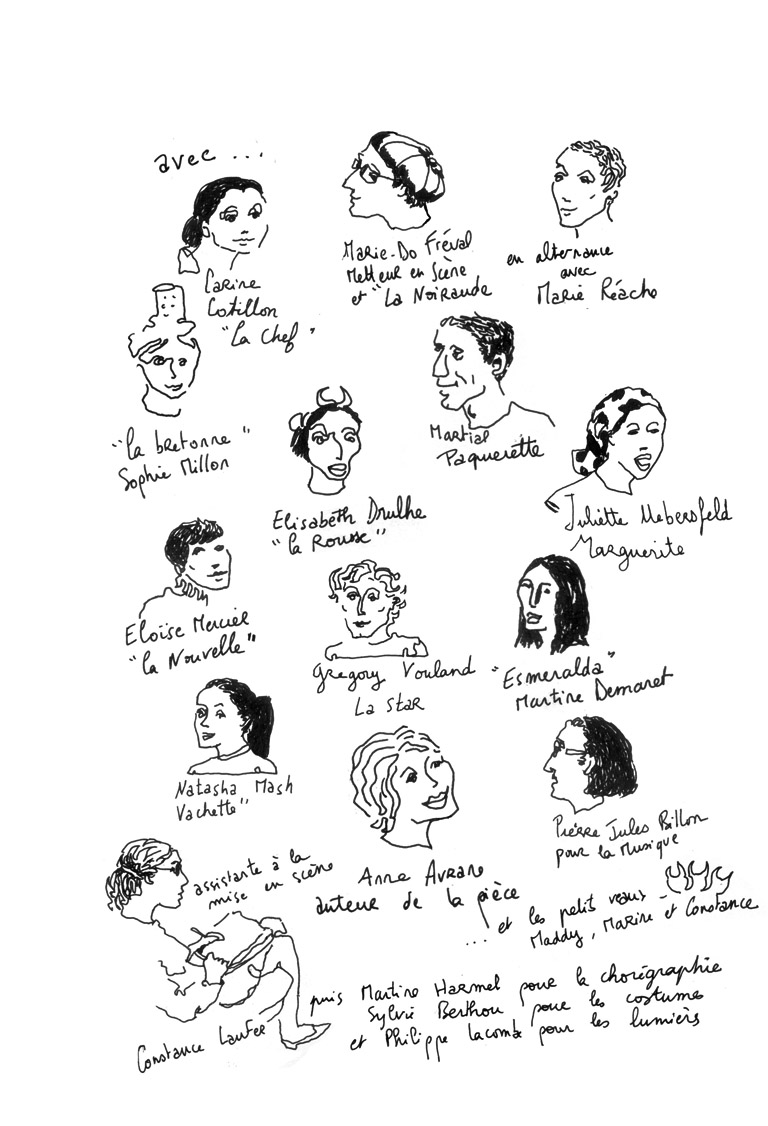 avec ...
Carine
Cotillon
"La Chef"
Marie-Do Fréval
Metteur en Scène
et "La Noiraude
en alternance
avec
Marie Réache
"la bretonne"
Sophie Millon
Elisabeth Drulhe
"la Rousse"
Martial
Paquerette
Juliette Uebersfeld
Marguerite
Eloïse Mercier
"la Nouvelle"
Gregory Vouland
La Star
"Esmeralda"
Martine Demaret
Natasha Mash
Vachette"
Anne Avrane
auteur de la pièce
Pierre Jules Billon
pour la Musique
assistante à la
mise en scène
Constance Laufer
... et les petits veaux -
Maddy, Marine et Constance
puis Martine Harmel pour la chorégraphie
Sylvie Berthou pour les costumes
et Philippe Lacombe pour les lumièrs